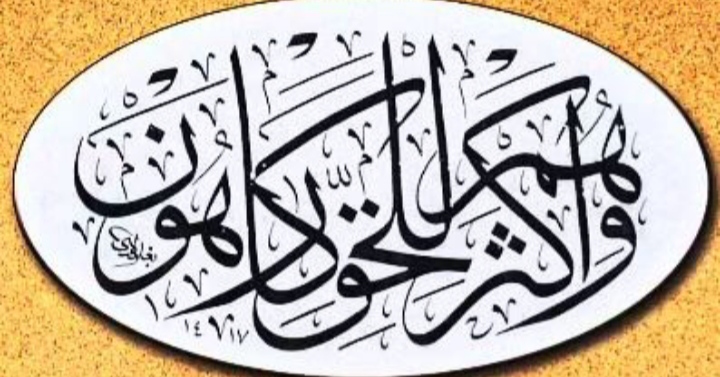 وأكثرهم للحق كارهون
١٤١٧